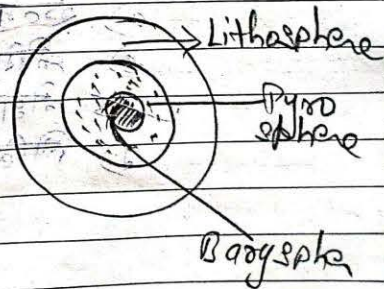 Lithosphere
Pyro
sphere
Baryspha